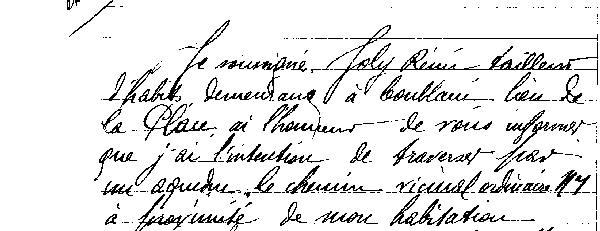 Je soussigné, Joly Rémi tailleur
d'habits demeurant à lieu de
la Place, ai l'honneur de vous informer
que j'ai l'intention de traverser par
un aqueduc le chemin vicinal ordinaire N°4
à proximité de mon habitation